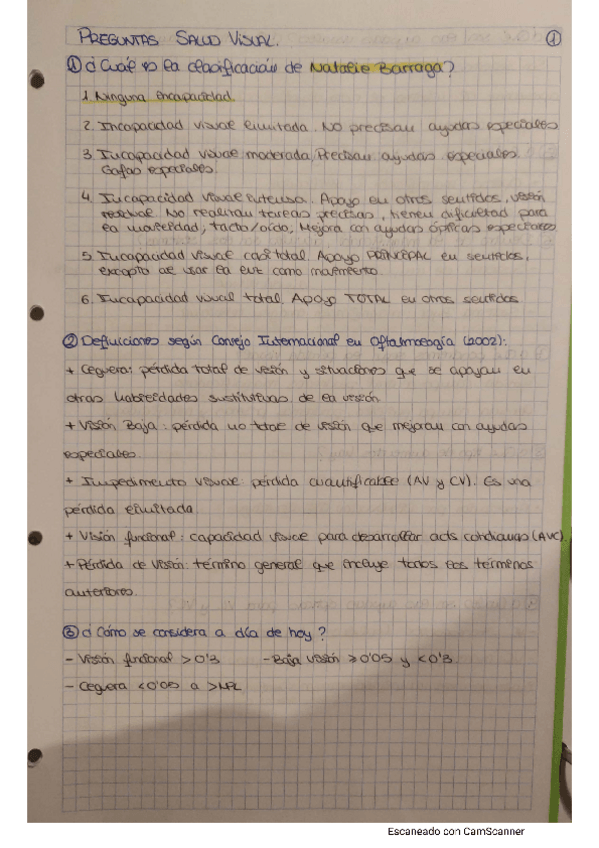 PREGUNTAS SALUD VISUAL. 1
1 ¿Cuál es la clasificación de Natalie Barraga?
1. Ninguna incapacidad.
2. Incapacidad visual limitada. No precisan ayudas especiales
3. Incapacidad visual moderada. Precisan ayudas especiales.
Gafas especiales.
4. Incapacidad visual intensa. Apoyo en otros sentidos, visión
residual. No realizan tareas precisas, tienen dificultad para
la movilidad, tacto/oído, Mejora con ayudas ópticas especiales
5. Incapacidad visual casi total. Apoyo PRINCIPAL en sentidos,
excepto al usar la luz como movimiento.
6. Incapacidad visual total. Apoyo TOTAL en otros sentidos
2 Definiciones según Consejo Internacional en Oftalmología (2002):
+ Ceguera: pérdida total de visión y situaciones que se apoyan en
otras habilidades sustitutivas de la visión
+ Visión Baja: pérdida no total de visión que mejoran con ayudas
especiales.
+ Impedimento visual: pérdida cuantificable (AV y CV). Es una
pérdida limitada.
+ Visión funcional: capacidad visual para desarrollar acts cotidianas (AVC).
+ Pérdida de visión: término general que incluye todos los términos
anteriores.
3 ¿Cómo se considera a día de hoy?
- Visión funcional > 0'3 - Baja visión ≥ 0'05 y < 0'3
- Ceguera < 0'05 a > NPL
Escaneado con CamScanner